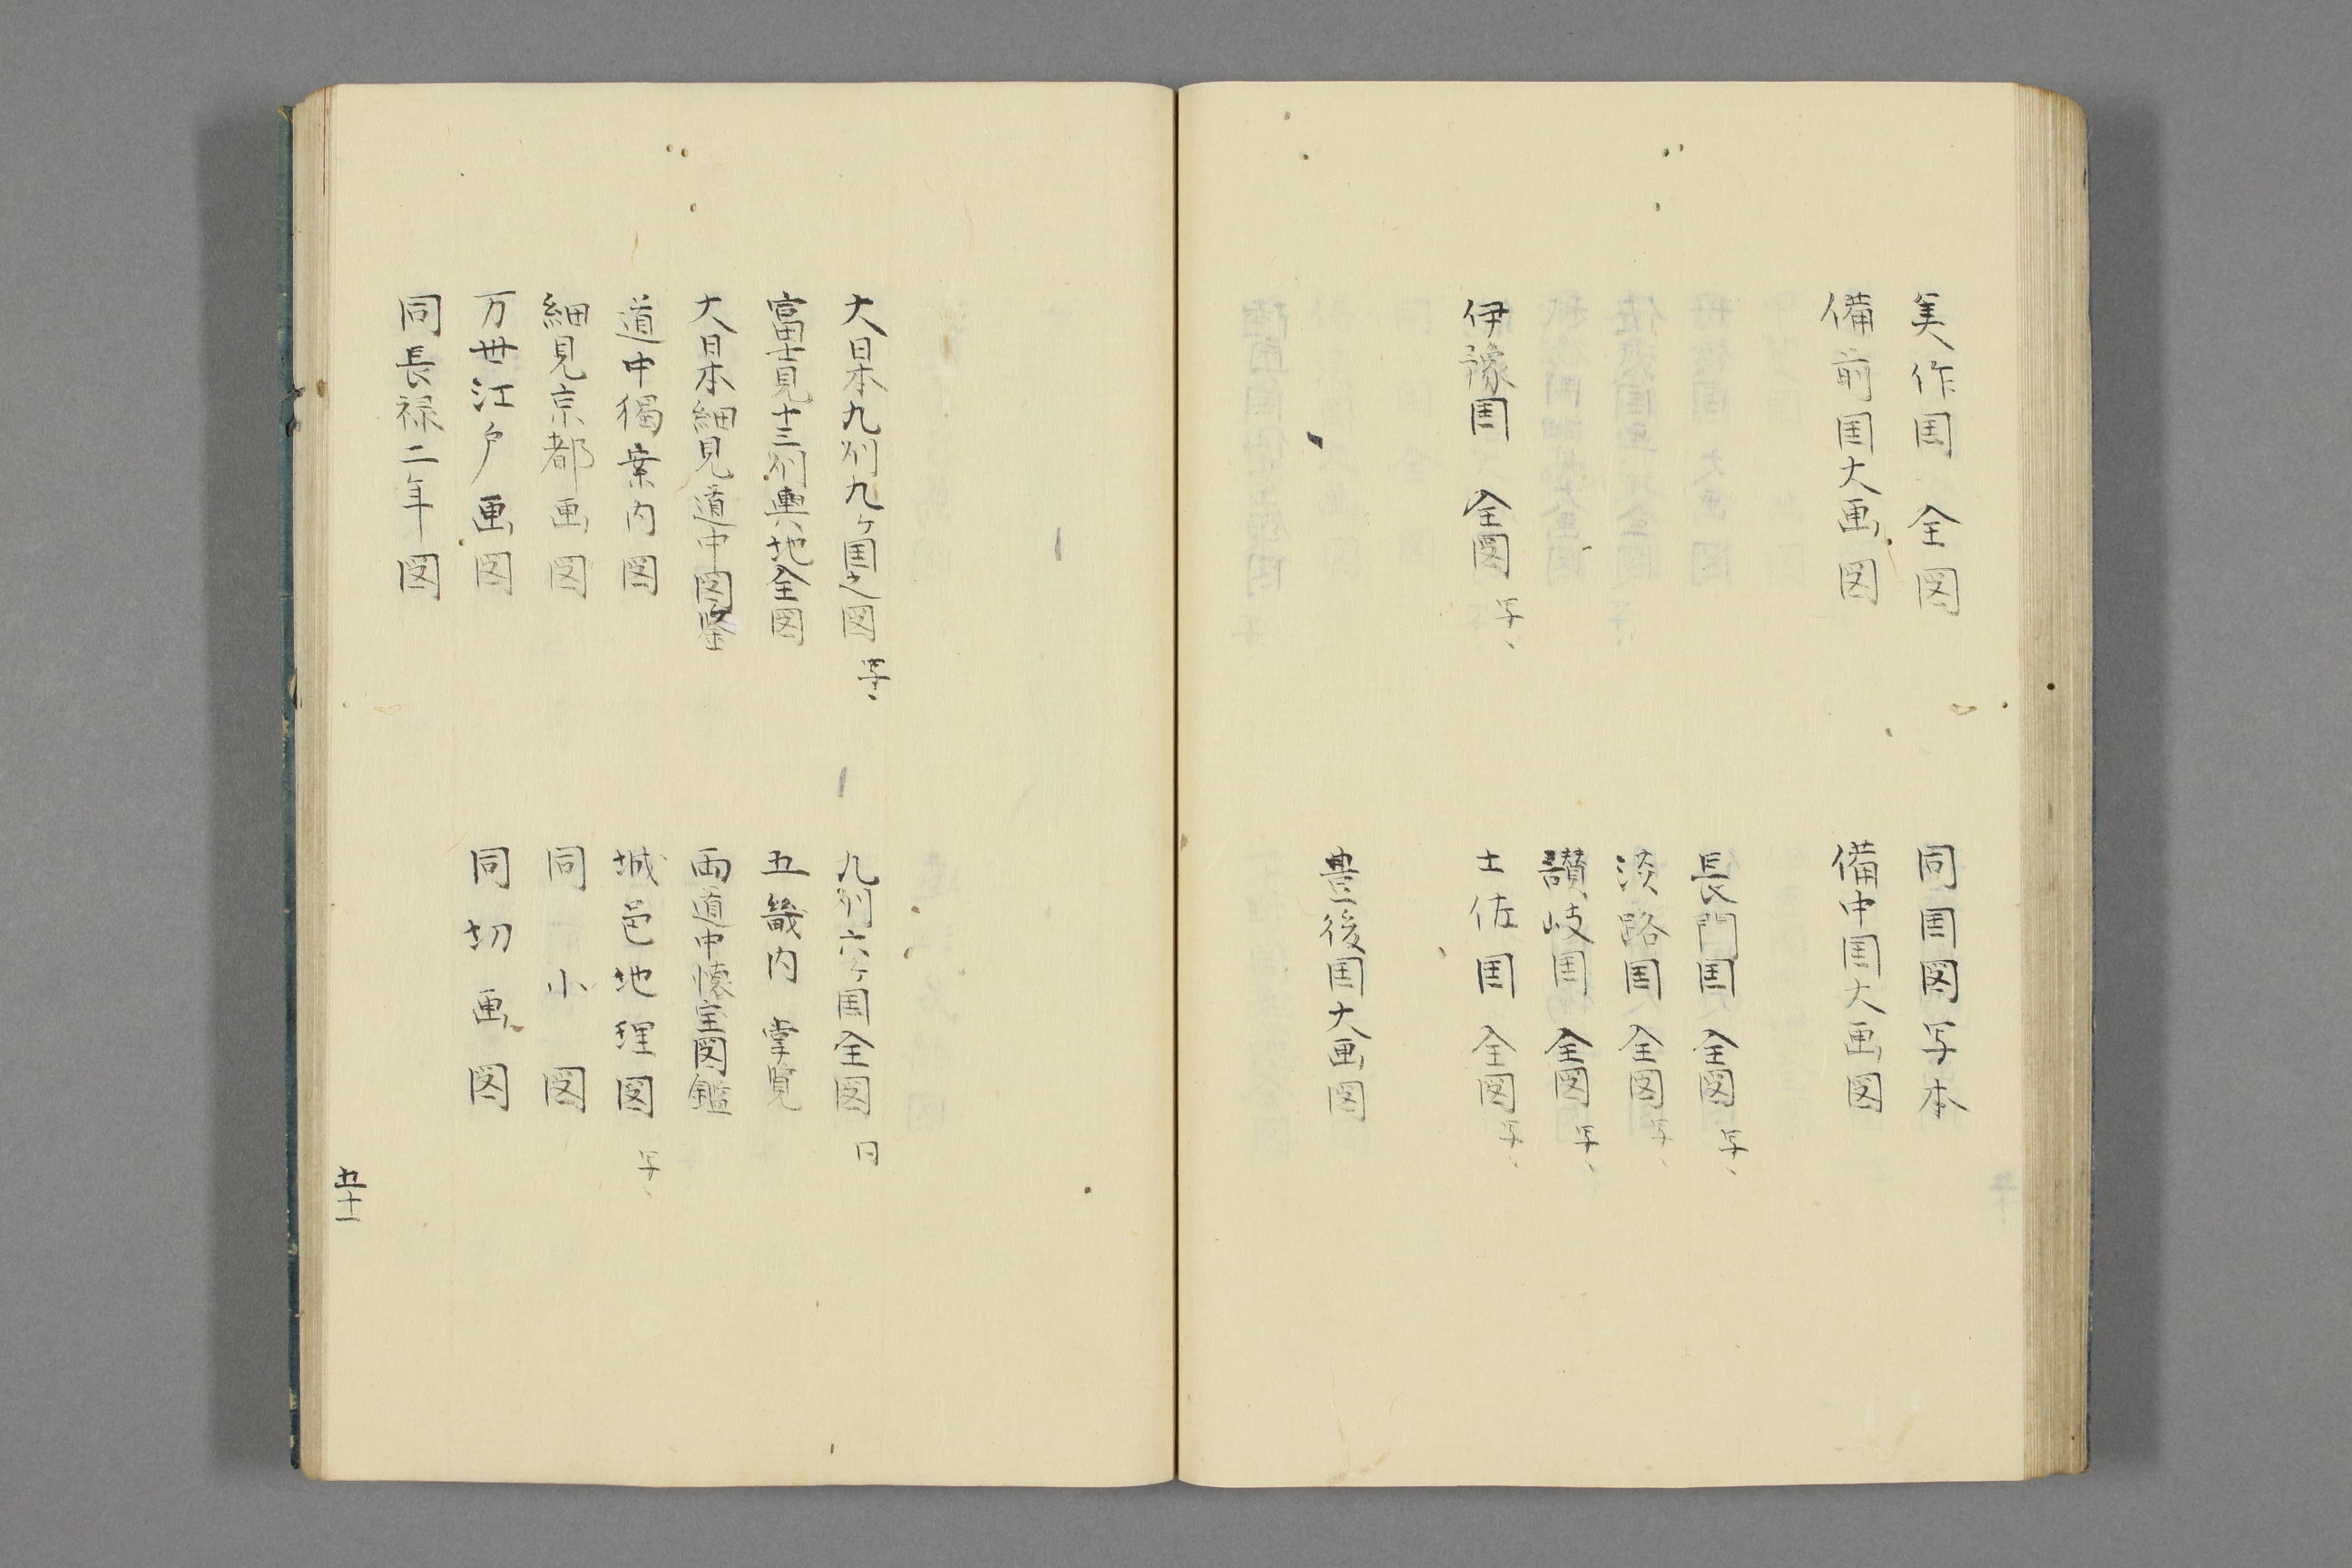 美作国 全図
同国図写本
備前国大画図
備中国大画図
長門国 全図 写、
淡路国 全図 写、
讃岐国 全図 写、
伊豫国 全図 写、
土佐国 全図 写、
豊後国大画図
大日本九州九ヶ国之図 写、
九州六ヶ国全図 同
富士見十三州輿地全図
五畿内 掌覧
大日本細見道中図鑒
両道中懐宝図鑑
道中獨案内図
城邑地理図 写、
細見京都画図
同 小 図
万世江戸画図
同切画図
同長禄二年図
五十一